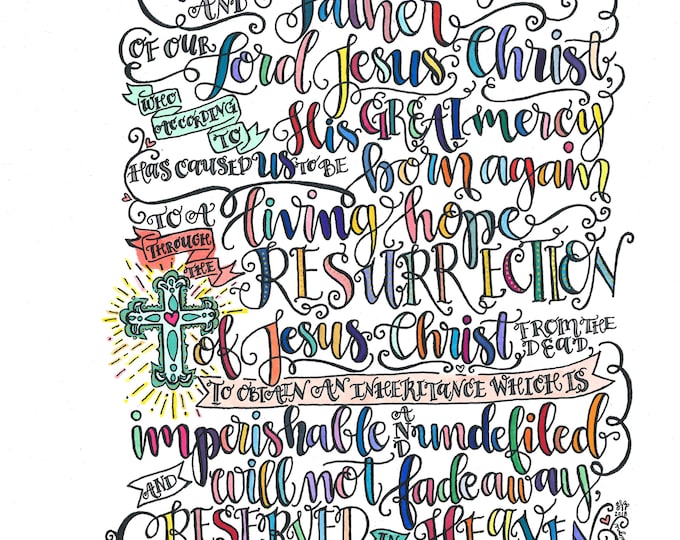 AND Father
OF OUR Lord Jesus Christ
WHO ACCORDING TO His GREAT mercy
HAS CAUSED US TO BE born again
TO A living hope
THROUGH THE RESURRECTION
of Jesus Christ FROM THE DEAD,
TO OBTAIN AN INHERITANCE WHICH IS
imperishable AND undefiled
AND will not fade away,
RESERVED IN HEAVEN